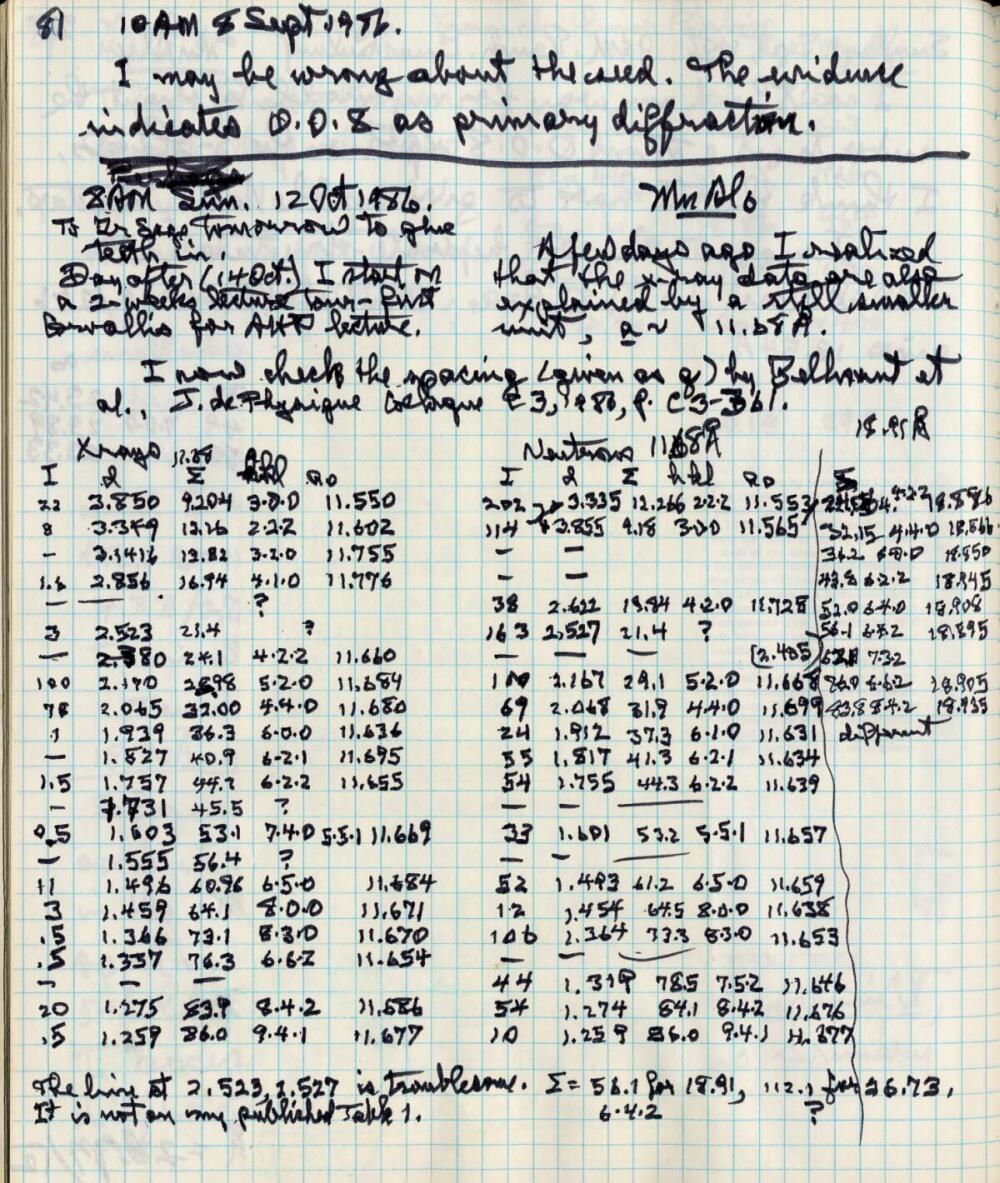 81 10 AM 8 Sept 1986.
I may be wrong about the seed. The evidence
indicates 0.0.8 as primary diffraction.
8AM Sun. 12 Oct 1986. MnAl6
To Dr Sage tomorrow to glue
teeth in.
Day after (14 Oct.) I start on
a 2-weeks lecture tour - first
Corvallis for AHP lecture.
A few days ago I realized
that the x-ray data are also
explained by a still smaller
unit, a ~ 11.68 Å.
I now check the spacing (given as q) by Belhount et
al., J. de Physique Colloque C3, 1986, p. C3-361.
Xrays 11.68 Neutrons 11.68 Å 18.91 Å
I d Σ hkl a0 I d Σ hkl a0 Σ
22 3.850 9.204 3.0.0 11.550 202 3.335 12.266 2.2.2 11.553 18.886
8 3.349 12.16 2.2.2 11.602 114 3.855 9.18 3.0.0 11.565 32.15 4.4.0 18.866
— 3.1416 13.82 3.2.0 11.755 — — 36.2 6.0.0 18.850
1.8 2.856 16.94 4.1.0 11.776 — — 43.8 6.2.2 18.945
— — ? 38 2.622 19.84 4.2.0 11.728 52.0 6.4.0 18.908
3 2.523 21.4 ? 163 2.527 21.4 ? 56.1 6.4.2 18.895
— 2.380 24.1 4.2.2 11.660 — — — [2.405] 7.3.2
100 2.170 28.98 5.2.0 11.684 100 2.167 29.1 5.2.0 11.668 18.905
78 2.065 32.00 4.4.0 11.680 69 2.068 31.9 4.4.0 11.699 83.8 8.4.2 18.935
1 1.939 36.3 6.0.0 11.636 24 1.912 37.3 6.1.0 11.631 different
— 1.827 40.9 6.2.1 11.695 55 1.817 41.3 6.2.1 11.634
1.5 1.757 44.2 6.2.2 11.655 54 1.755 44.3 6.2.2 11.639
— 1.731 45.5 ? — — —
0.5 1.603 53.1 7.4.0 5.5.1 11.669 33 1.601 53.2 5.5.1 11.657
— 1.555 56.4 ? — — —
11 1.496 60.96 6.5.0 11.684 52 1.493 61.2 6.5.0 11.659
3 1.459 64.1 8.0.0 11.671 12 1.454 64.5 8.0.0 11.638
.5 1.366 73.1 8.3.0 11.670 106 1.364 73.3 8.3.0 11.653
.5 1.337 76.3 6.6.2 11.654 — — —
— — — 44 1.319 78.5 7.5.2 11.646
20 1.275 83.9 8.4.2 11.686 54 1.274 84.1 8.4.2 11.676
.5 1.259 86.0 9.4.1 11.677 10 1.259 86.0 9.4.1 11.677
The line at 2.523, 2.527 is troublesome. Σ = 56.1 for 18.91, 112.1 for 26.73,
It is not on my published Table 1. 6.4.2 ?